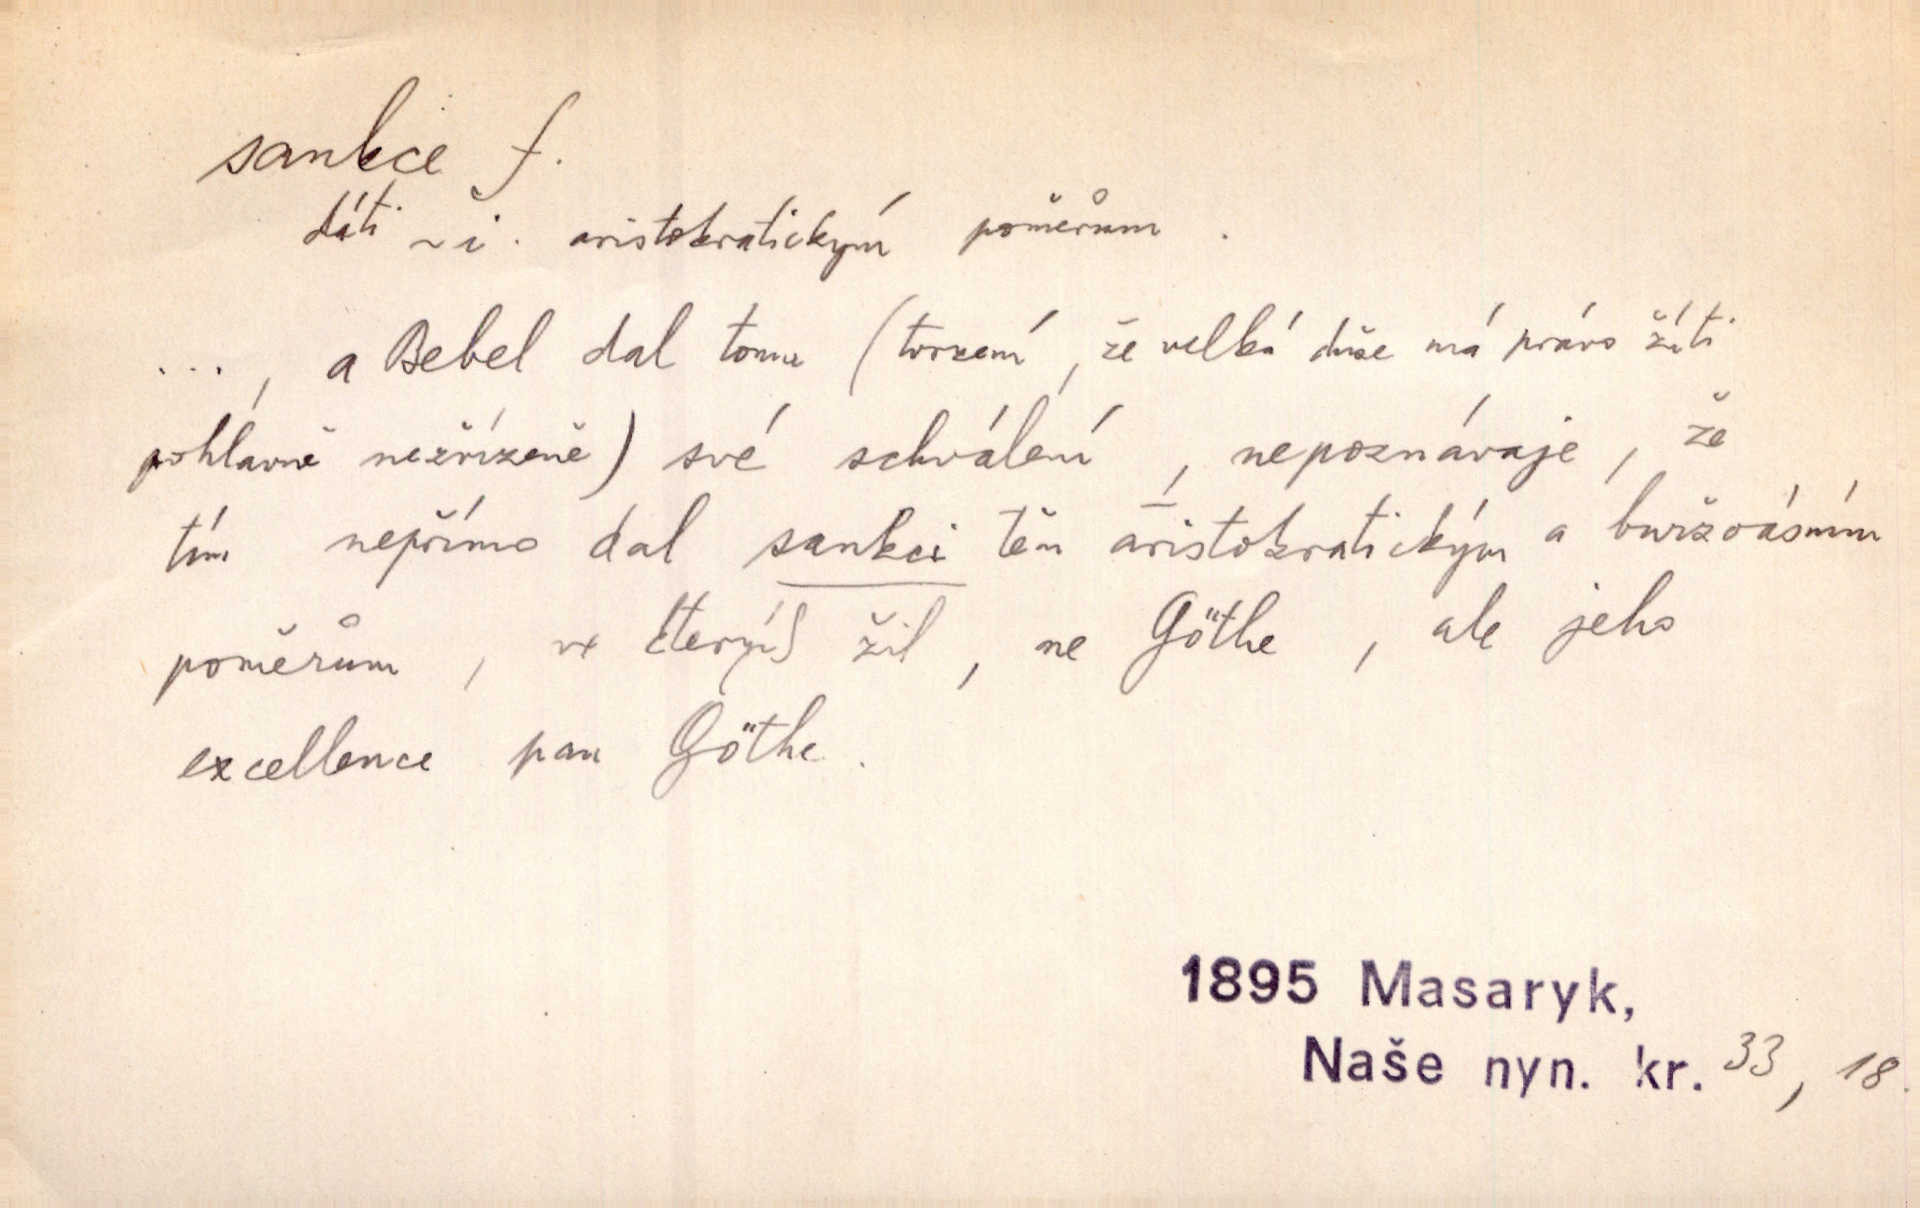 sankce f.
dáti ~i. aristokratickým poměrům.
..., a Bebel dal tomu (tvrzení, že velká duše má právo žíti
pohlavně nezřízeně) své schválení, nepoznávaje, že
tím nepřímo dal sankci těm aristokratickým a buržoásním
poměrům, ve kterýchž žil, ne Göthe, ale jeho
excellence pan Göthe.
1895 Masaryk,
Naše nyn. kr. 33, 18.